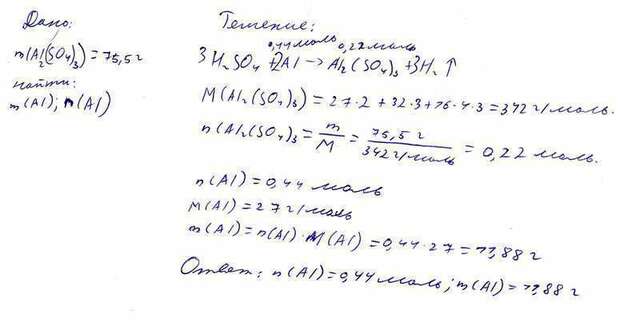 Дано:
m(Al₂(SO₄)₃) = 75,5 г
найти:
m(Al); n(Al)
Решение:
0,44 моль 0,22 моль
3H₂SO₄ + 2Al → Al₂(SO₄)₃ + 3H₂ ↑
M(Al₂(SO₄)₃) = 27·2 + 32·3 + 16·4·3 = 342 г/моль.
n(Al₂(SO₄)₃ = m/M = 75,5 г/342 г/моль = 0,22 моль.
n(Al) = 0,44 моль
M(Al) = 27 г/моль
m(Al) = n(Al)·M(Al) = 0,44·27 = 11,88 г
Ответ: n(Al) = 0,44 моль; m(Al) = 11,88 г